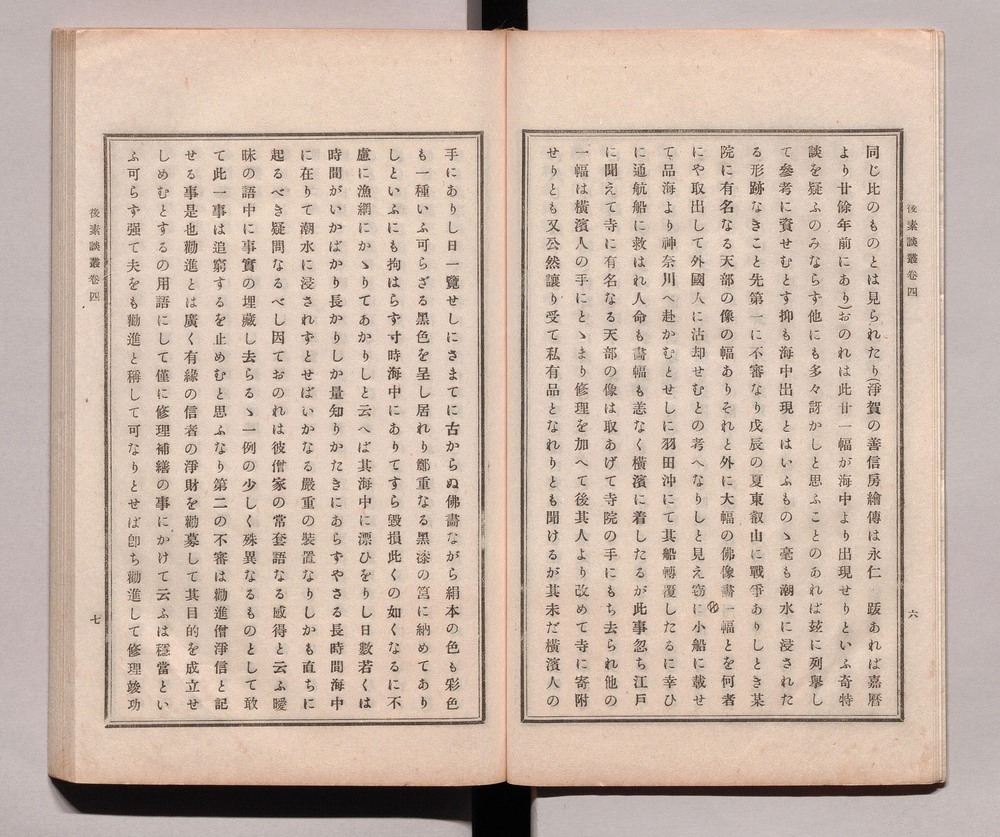 後素談叢卷四
六
同じ比のものとは見られたり(淨賀の善信房繪傳は永仁　跋あれば嘉曆
より廿餘年前にあり)おのれは此廿一幅が海中より出現せりといふ奇特
談を疑ふのみならす他にも多々訝かしと思ふことのあれば玆に列擧し
て參考に資せむとす抑も海中出現とはいふものゝ毫も潮水に浸された
る形跡なきこと先第一に不審なり戊辰の夏東叡山に戰爭ありしとき某
院に有名なる天部の像の幅ありそれと外に大幅の佛像畫一幅とを何者
にや取出して外國人に沽却せむとの考へなりしと見え窃に小船に載せ
て品海より神奈川へ赴かむとせしに羽田沖にて其船轉覆したるに幸ひ
に通航船に救はれ人命も畫幅も恙なく橫濱に着したるが此事忽ち江戶
に聞えて寺に有名なる天部の像は取あげて寺院の手にもち去られ他の
一幅は橫濱人の手にとゝまり修理を加へて後其人より改めて寺に寄附
せりとも又公然讓り受て私有品となれりとも聞けるが其未だ橫濱人の
手にありし日一覽せしにさまてに古からぬ佛畵ながら絹本の色も彩色
も一種いふ可らざる黑色を呈し居れり鄭重なる黑漆の筥に納めてあり
しといふにも拘はらす寸時海中にありてすら毀損此くの如くなるに不
慮に漁網にかゝりてあかりしと云へば其海中に漂ひをりし日數若くは
時間がいかばかり長かりしか量知りかたきにあらすやさる長時間海中
に在りて潮水に浸されずとせばいかなる嚴重の裝置なりしかも直ちに
起るべき疑問なるべし因ておのれは彼僧家の常套語なる感得と云ふ曖
昧の語中に事實の埋藏し去らるゝ一例の少しく殊異なるものとして敢
て此一事は追窮するを止めむと思ふなり第二の不審は勸進僧淨信と記
せる事是也勸進とは廣く有緣の信者の淨財を勸募して其目的を成立せ
しめむとするの用語にして僅に修理補繕の事にかけて云ふは穩當とい
ふ可らす强て夫をも勸進と稱して可なりとせば卽ち勸進して修理竣功
後素談叢卷四
七